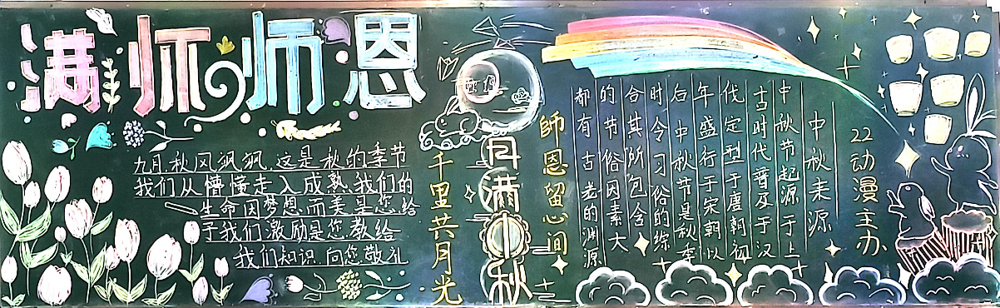 满怀师恩
九月,秋风飒飒,这是秋的季节
我们从懵懂走入成熟,我们的
生命因梦想而美是您给
予我们激励是您教给
我们知识,向您敬礼
千里共月光
月满中秋
師恩留心间
22动漫主办
中秋来源
中秋节起源于上
古时代普及于汉
代定型于唐朝初
年盛行于宋朝以
后中秋节是秋季
时令习俗的综
合其所包含
的节俗因素大
都有古老的渊源